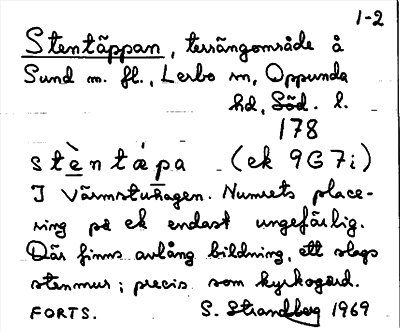 1-2
Stentäppan, terrängområde å
Sund m. fl., Lerbo sn, Oppunda
hd, Söd. l.
178
stèntæpa (ek 9G7i)
I Värmstuhagen. Numrets place-
ring på ek endast ungefärlig.
Där finns avlång bildning, ett slags
stenmur; precis som kyrkogård.
FORTS. S. Strandberg 1969